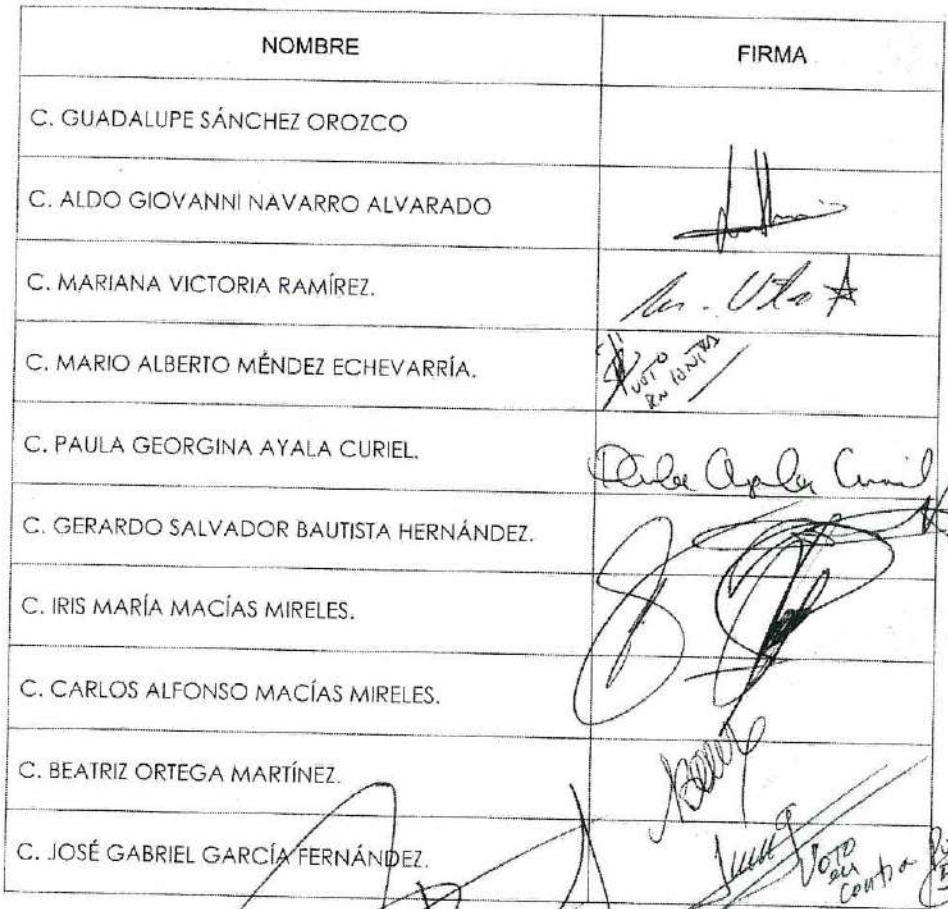 NOMBRE FIRMA
C. GUADALUPE SÁNCHEZ OROZCO
C. ALDO GIOVANNI NAVARRO ALVARADO
C. MARIANA VICTORIA RAMÍREZ.
C. MARIO ALBERTO MÉNDEZ ECHEVARRÍA.
VOTO
EN CONTRA
C. PAULA GEORGINA AYALA CURIEL.
Paula Ayala Curiel
C. GERARDO SALVADOR BAUTISTA HERNÁNDEZ.
C. IRIS MARÍA MACÍAS MIRELES.
C. CARLOS ALFONSO MACÍAS MIRELES.
C. BEATRIZ ORTEGA MARTÍNEZ.
C. JOSÉ GABRIEL GARCÍA FERNÁNDEZ.
Voto
en
contra